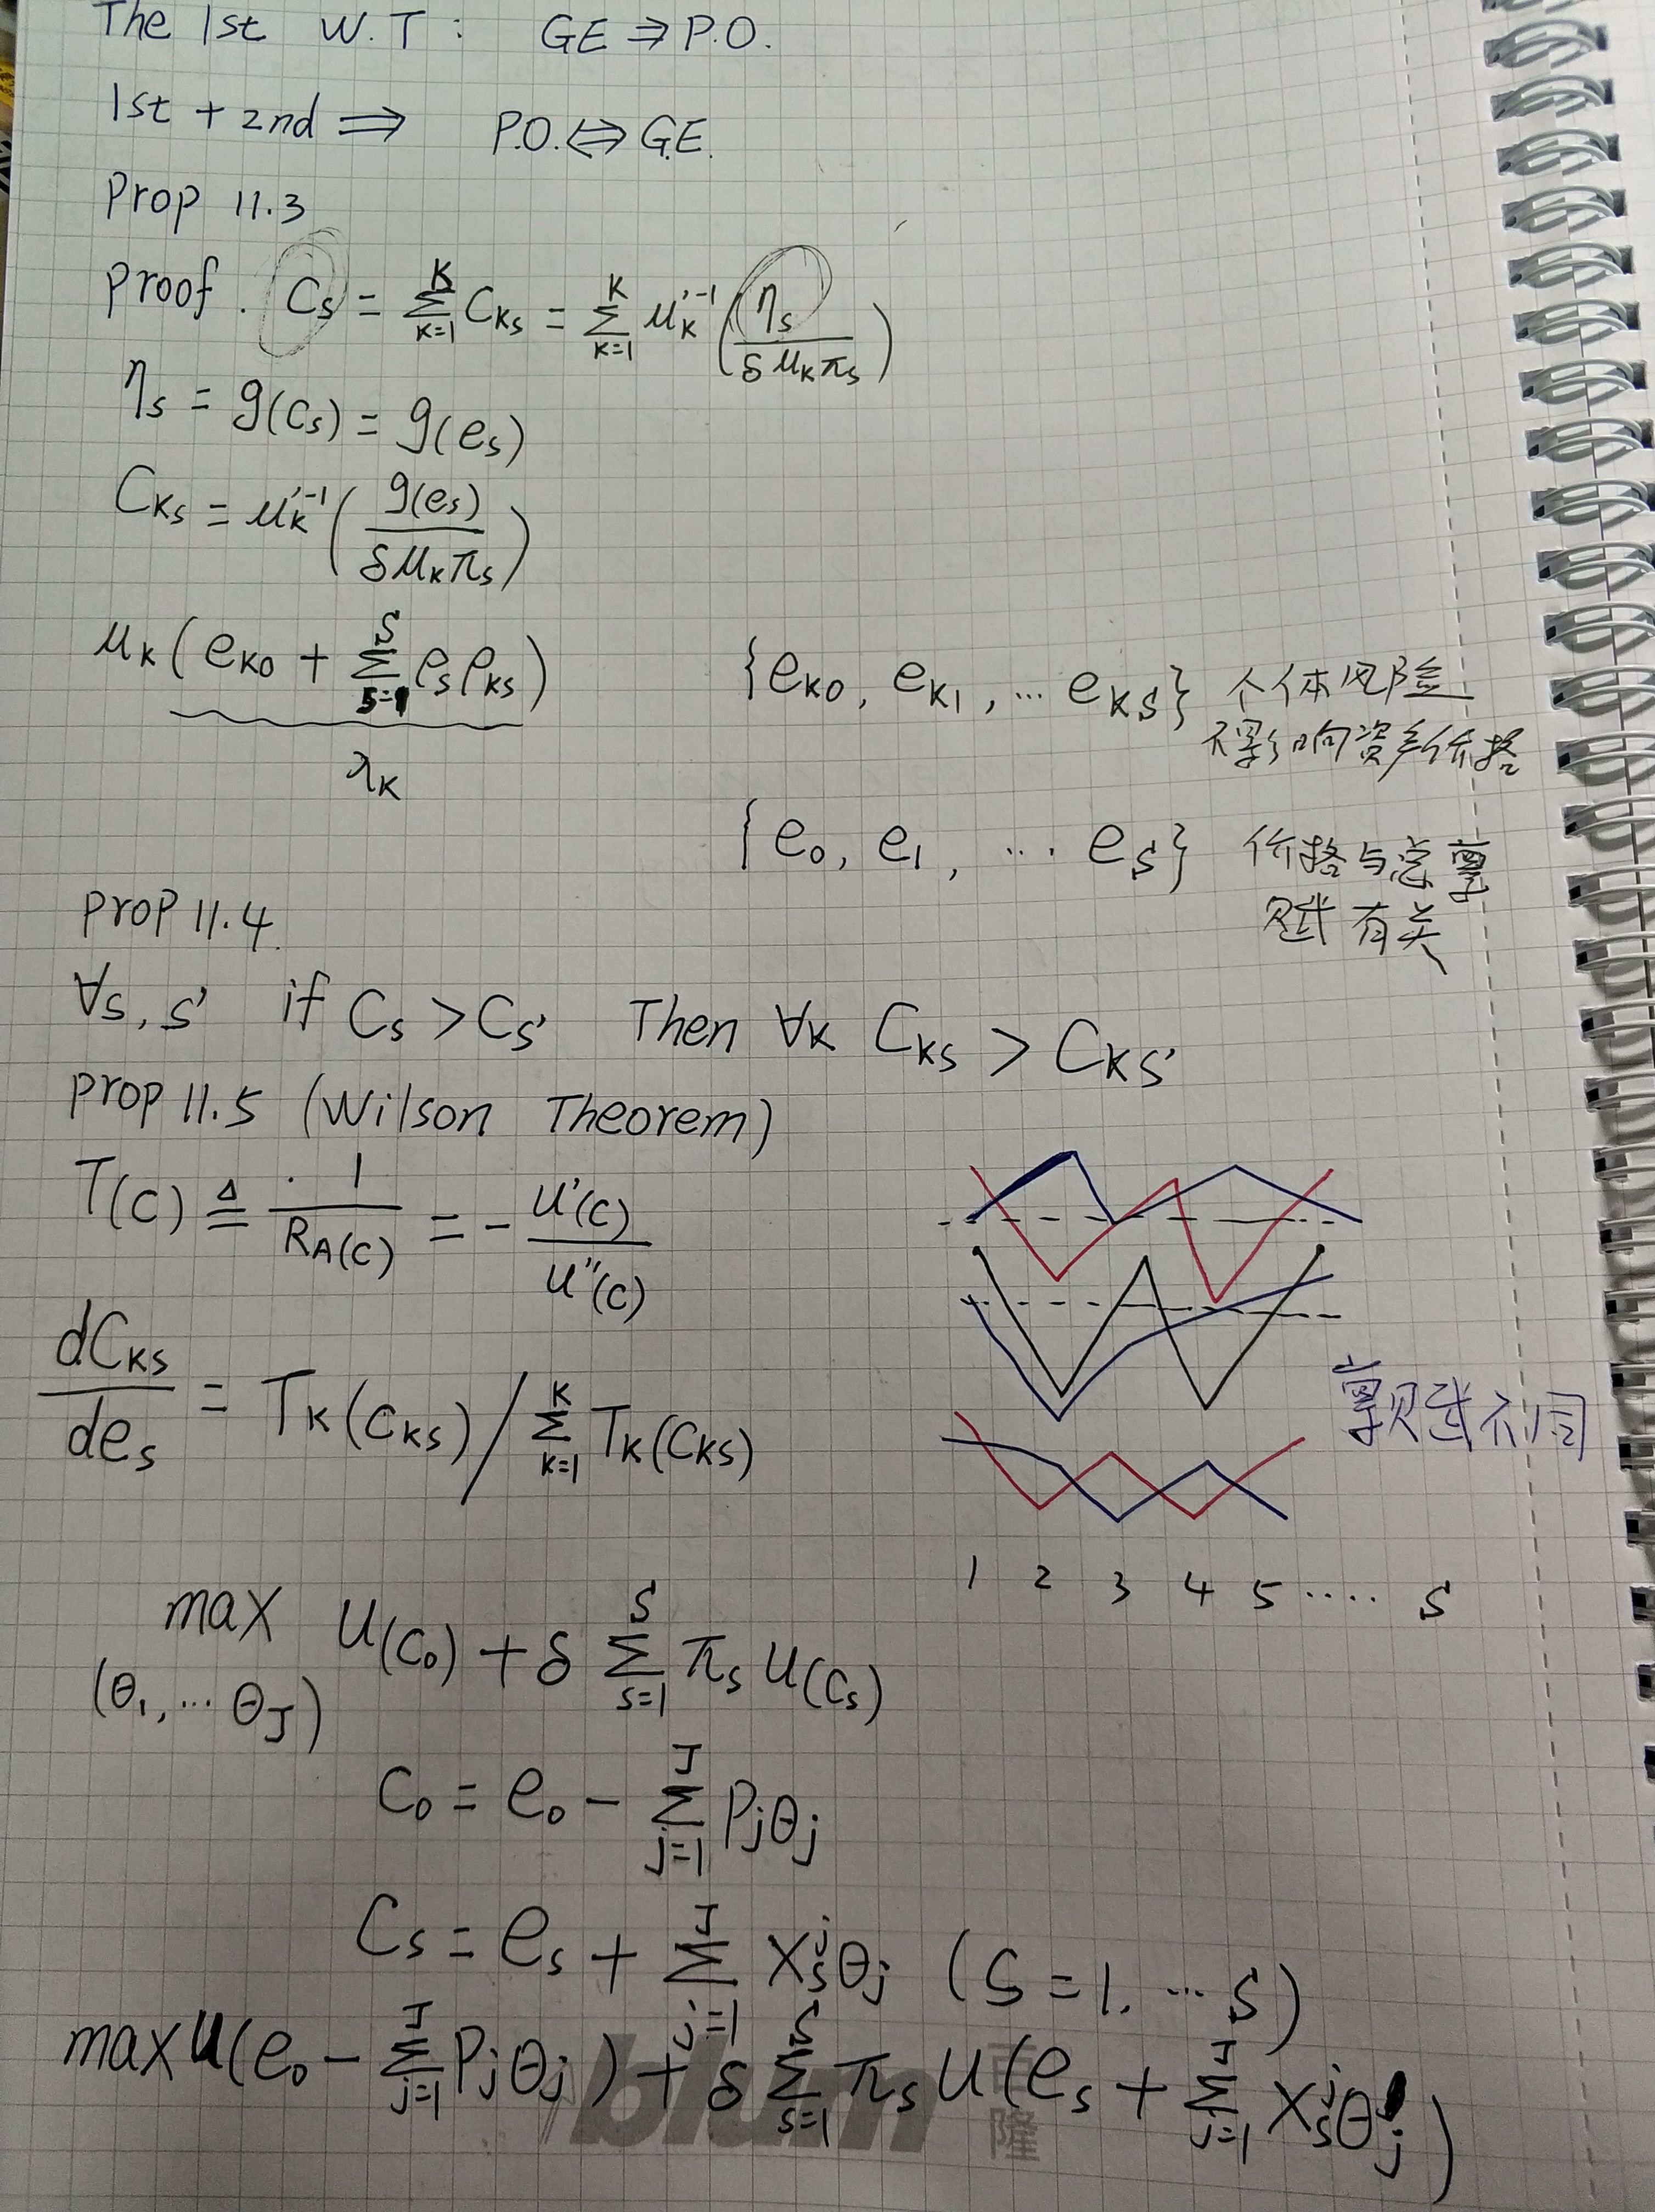 The 1st W.T: GE ⇒ P.O.
1st + 2nd ⇒ P.O. ⇔ G.E.
Prop 11.3
Proof. C_s = Σ_{k=1}^{K} C_{ks} = Σ_{k=1}^{K} u_k'^{-1}(η_s / (δ μ_k π_s))
η_s = g(c_s) = g(e_s)
C_{ks} = u_k'^{-1}(g(e_s) / (δ μ_k π_s))
μ_k(e_{k0} + Σ_{s=1}^{S} ρ_s e_{ks})
λ_k
{e_{k0}, e_{k1}, ... e_{kS}} 个体风险
不影响资产价格
{e_0, e_1, ... e_S} 价格与总禀
赋有关
Prop 11.4.
∀s, s' if C_s > C_{s'} Then ∀k C_{ks} > C_{ks'}
Prop 11.5 (Wilson Theorem)
T(c) ≜ 1 / R_A(c) = - u'(c) / u''(c)
dC_{ks} / de_s = T_k(C_{ks}) / Σ_{k=1}^{K} T_k(C_{ks})
禀赋不同
1 2 3 4 5 .... S
max u(c_0) + δ Σ_{s=1}^{S} π_s u(c_s)
(θ_1, ... θ_J)
C_0 = e_0 - Σ_{j=1}^{J} P_j θ_j
C_s = e_s + Σ_{j=1}^{J} x_s^j θ_j (s = 1. ... S)
max u(e_0 - Σ_{j=1}^{J} P_j θ_j) + δ Σ_{s=1}^{S} π_s u(e_s + Σ_{j=1}^{J} x_s^j θ_j)
blum
隆